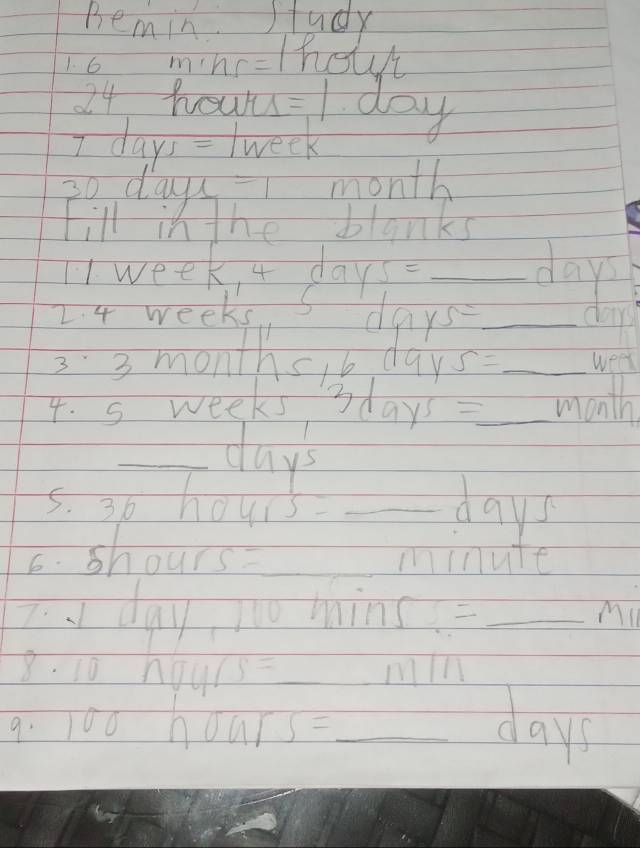 Remin. Study
1.6 mins=1hour
24 hours=1.day
7 days=1week
30 days=1 month
Fill in the blanks
1.1 week, 4 days=____days
2.4 weeks, 5 days=____days
3. 3 months, 6 days=____week
4. 5 weeks, 3days=____month,
____days
5. 36 hours=____days
6. 5hours=____minute
7. 1 day, 100 mins=____
8. 10 hours=____min
9. 100 hours=____days